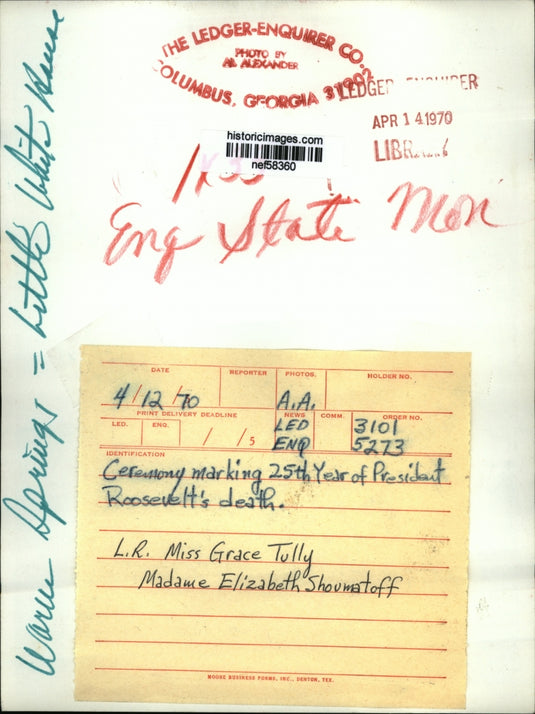 THE LEDGER-ENQUIRER CO.
PHOTO BY
AL ALEXANDER
COLUMBUS, GEORGIA 31902
LEDGER-ENQUIRER
APR 14 1970
LIBRARY
historicimages.com
nef58360
Enq State Mon
Warm Springs = Little White House
DATE
REPORTER
PHOTOS.
HOLDER NO.
4/12/70
A.A.
PRINT DELIVERY DEADLINE
NEWS
COMM.
ORDER NO.
LED.
ENQ.
/ / 5
LED
3101
ENQ
5273
IDENTIFICATION
Ceremony marking 25th Year of President
Roosevelt's death.
L.R. Miss Grace Tully
Madame Elizabeth Shoumatoff
MOORE BUSINESS FORMS, INC., DENTON, TEX.